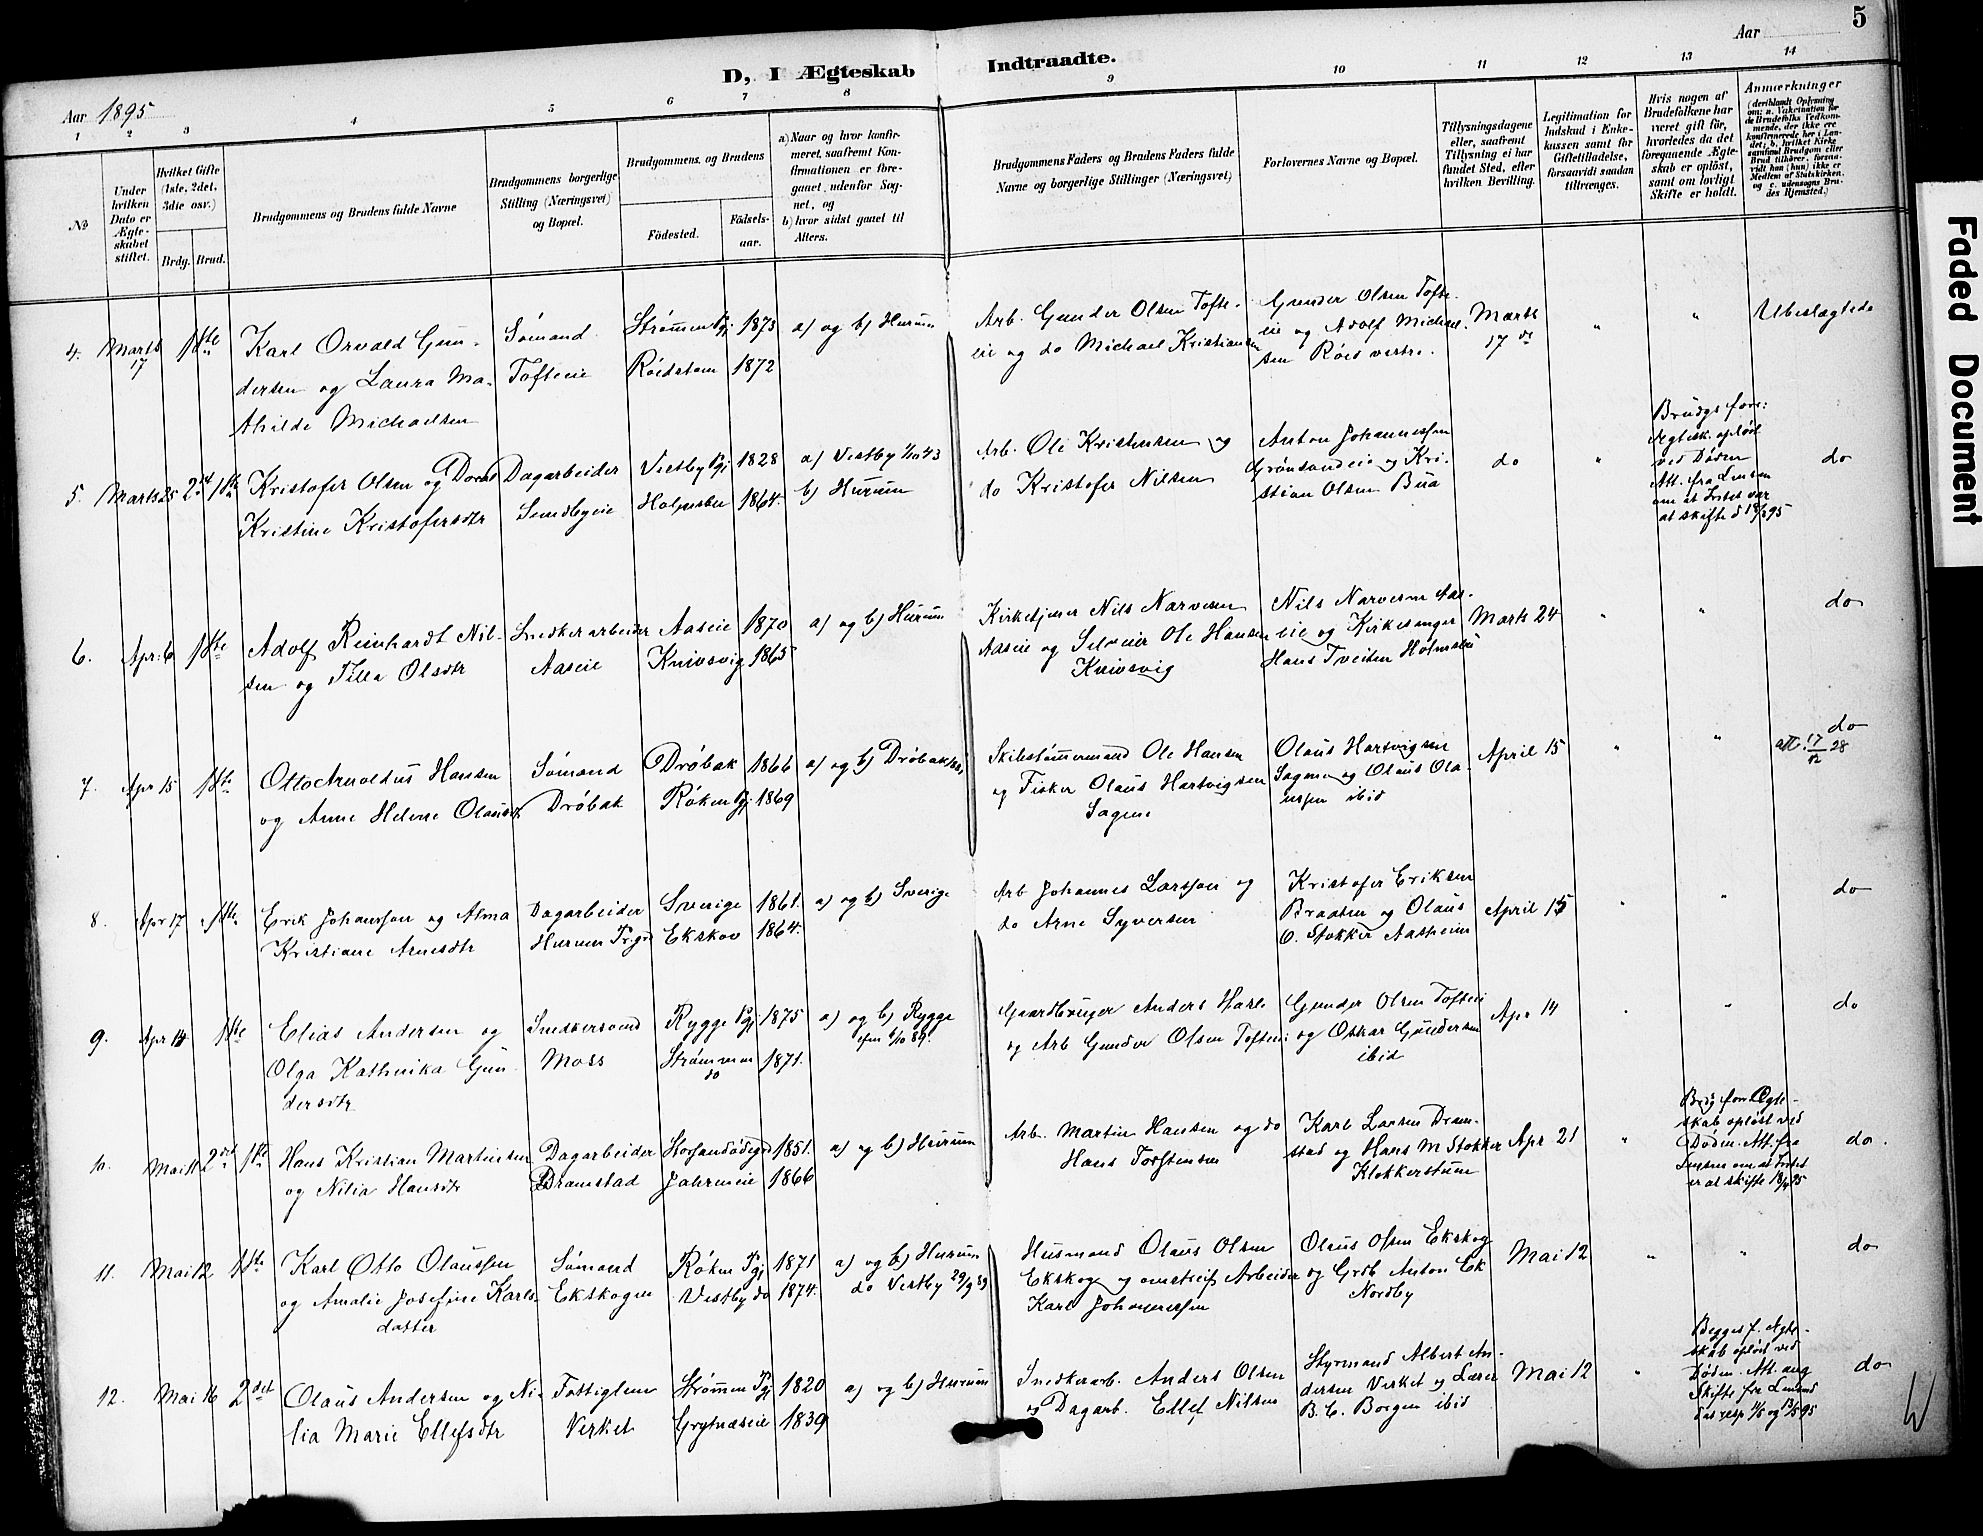 5
Aar
D, I Ægteskab Indtraadte.
Aar 1895
1 2 3 4 5 6 7 8 9 10 11 12 13 14
No
Under hvilken Dato er Ægteskabet stiftet.
Hvilket Gifte (1ste, 2det, 3die osv.)
Brdg. Brud.
Brudgommens og Brudens fulde Navne
Brudgommens borgerlige Stilling (Næringsvei) og Bopæl.
Brudgommens, og Brudens
Födested.
Födsels-aar.
a) Naar og hvor konfirmeret, saafremt Konfirmationen er foregaaet, udenfor Sognet, og
b) hvor sidst gaaet til Alters.
Brudgommens Faders og Brudens Faders fulde Navne og borgerlige Stillinger (Næringsvei)
Forlovernes Navne og Bopæl.
Tillysningsdagene eller, saafremt Tillysning ei har fundet Sted, efter hvilken Bevilling.
Legitimation for Indskud i Enkekassen samt for Giftetilladelse, forsaavidt saadan tiltrænges.
Hvis nogen af Brudefolkene har været gift för, hvorledes da det foregaaende Ægteskab er oplöst, samt om lovligt Skifte er holdt.
Anmærkninger
(deriblandt Oplysning om: a. Vakcination for de Brudefolks Vedkommende, der ikke ere konfirmerede her i Landet; b. hvilket Kirkesamfund Brudgom eller Brud tilhörer, forsaavidt han (hun) ikke er Medlem af Statskirken. og c. udensogns Brudes Hjemsted.)
4. Marts 17 1ste Karl Orvald Gundersen og Laura Mathilde Michaelsen
Sömand Tofteie
Strömmen Pgj 1873
Röidstom 1872
a) og b) Hurum
Arb. Gunder Olsen Tofteeie og do Michael Kristiansen
Gunder Olsen Tofteeie og Adolf Michaelsen Röed vestre.
Marts 17de
" "
Ubeslægtede
5. Marts 25 2det 1ste Kristofer Olsen og Dorthea Kristine Kristofersdtr
Dagarbeider Sundbyeie
Vestby Pgj 1828
Holmsbu 1864.
a) Vestby 1/10 43
b) Hurum
Arb. Ole Kristensen og do Kristofer Nilsen
Anton Johannessen Grönsandeie og Kristian Olsen Bua
do
"
Brudgs for: Ægtesk. oplöst ved Döden Att. fra Lensm om at Intet var at skifte d 18/3 95
do
6. Apr. 6 1ste Adolf Reinhardt Nilsen og Tilla Olsdtr
Snedkerarbeider Aaseie
Aaseie 1870
Knivsvig 1865
a) og b) Hurum
Kirketjener Nils Narvesen Aaseie og Selveier Ole Hansen Knivsvig
Nils Narvesen Aaseie og Kirkesanger Hans Tveiten Holmsbu
Marts 24
" "
do
7. Apr 15 1ste Otto Arnoldus Hansen og Anne Helene Olausdtr
Sömand Dröbak
Dröbak 1866
Röken Pgj 1869
a) og b) Dröbak
Skibstömmermand Ole Hansen og Fisker Olaus Hartvigsen Sagene
Olaus Hartvigsen Sagene og Olaus Olaussen ibid
April 15
" "
do
att. 17/12 28
8. Apr 17 1ste Erik Johansson og Alma Kristiane Arnesdtr
Dagarbeider Hurum Prgd
Sverige 1861.
Ekskov 1864.
a) og b) Sverige
Arb Johannes Larsson og do Arne Syversen
Kristofer Eriksen Braaten og Olaus O. Stokker Aasheim
April 15
" "
do
9. Apr 14 1ste Elias Andersen og Olga Kathinka Gundersdtr
Snedkersvend Moss
Rygge Pgj 1875
Strömmen do 1871.
a) og b) Rygge 6/10 89.
Gaardbruger Anders Hale og Arb Gunder Olsen Tofteeie
Gunder Olsen Tofteeie og Oskar Gundersen ibid
Apr 14
" "
do
10. Mai 11 2det 1ste Hans Kristian Martinsen og Nilia Hansdtr
Dagarbeider Dramstad
Storsandödegrd 1851.
Jahrmeie 1866
a) og b) Hurum
Arb. Martin Hansen og do Hans Torstensen
Karl Larsen Dramstad og Hans M Stokker Klokkerstuen
Apr 21
"
Brdg for Ægteskab oplöst ved Döden. Att. fra Lensm om at Intet er at skifte 18/4 95
do.
11. Mai 12 1ste Karl Otto Olaussen og Amalie Josefine Karlsdatter
Sömand Ekskogen
Röken Pgj 1871
Vestby do 1874.
a) og b) Hurum
do Vestby 29/9 89
Husmand Olaus Olsen Ekskoge og omstreif Arbeider Karl Johannessen
Olaus Olsen Ekskog og Grdb Anton Ek Nordby
Mai 12
" "
do
12. Mai 16 2det Olaus Andersen og Nilia Marie Ellefsdtr
Fattiglem Verket
Strömmen Pgj 1820
Grytnæseie 1839
a) og b) Hurum
Snedkerarb. Anders Olsen og Dagarb. Ellef Nilsen
Styrmand Albert Andersen Verket og Lærer B. C. Borgen ibid
Mai 12
"
Begges f. Ægteskab oplöst ved Döden. Att. ang Skifte fra Lensmd resp 1/5 og 13/5 95
do
Faded Document